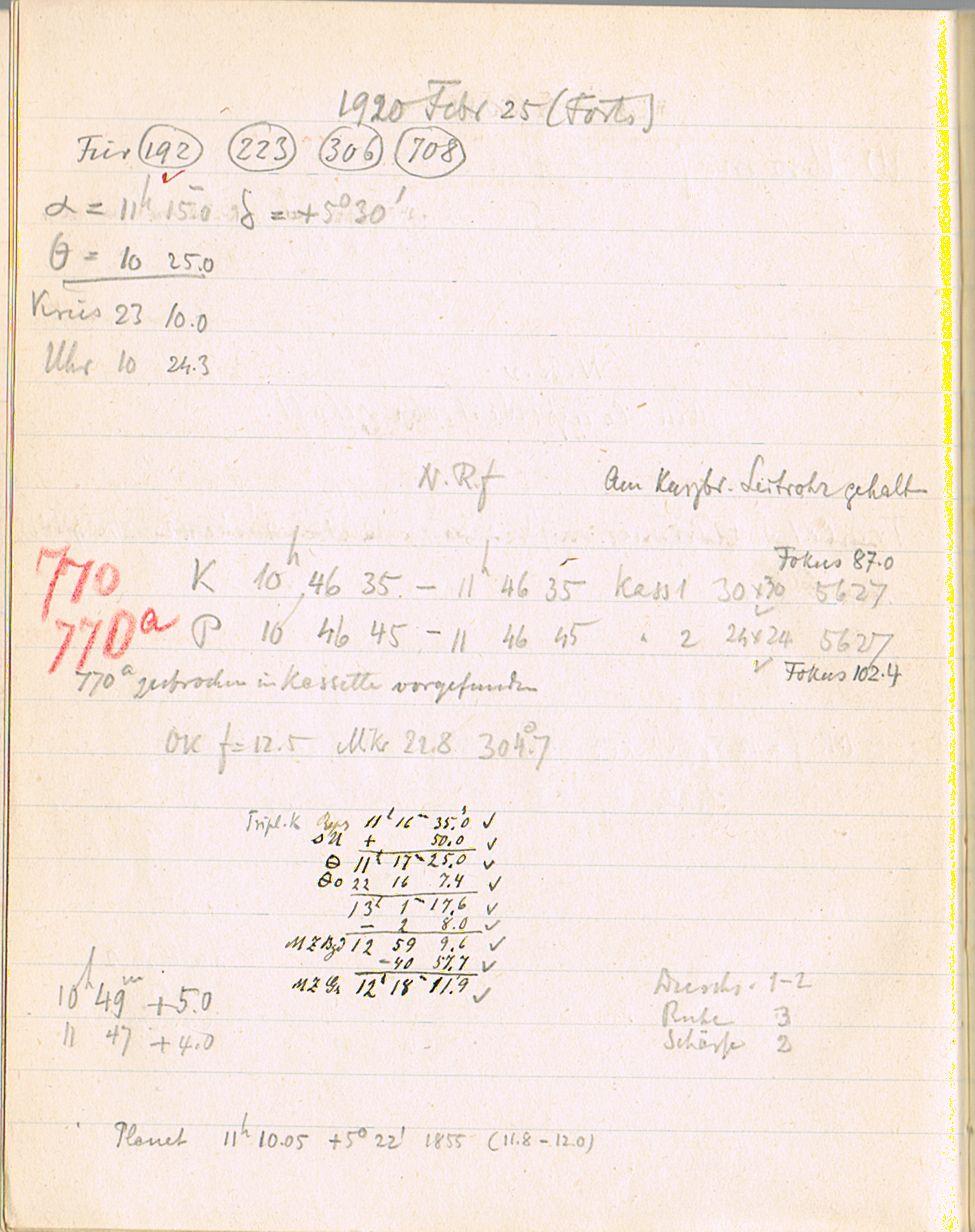 1920 Febr 25 (Forts)
Für 192 223 306 708
α = 11h 15.0 δ = +5° 30'
θ = 10 25.0
Kreis 23 10.0
Uhr 10 24.3
N. R. f Am Leitrohr gehalt
Fokus 87.0
770 K 10h 46 35 – 11h 46 35 Kass 1 30x30 5627
770a P 10 46 45 – 11 46 45 " 2 24x24 5627
Fokus 102.4
770a zerbrochen in Kassette vorgefunden
OK f = 12.5 Mikr 22.8 304°.7
Tripl. K 11h 16m 35.s0 ✓
ΔU + 50.0 ✓
θ 11h 17m 25.0 ✓
θo 22 16 7.4 ✓
13h 1m 17.6 ✓
– 2 8.0 ✓
MZ Bgd 12 59 9.6 ✓
–40 57.7 ✓
MZ Gr 12h 18m 11.9 ✓
10h 49m +5.0
11 47 +4.0
Durchs. 1-2
Ruhe 3
Schärfe 2
Planet 11h 10.05 +5° 22' 1855 (11.8 – 12.0)